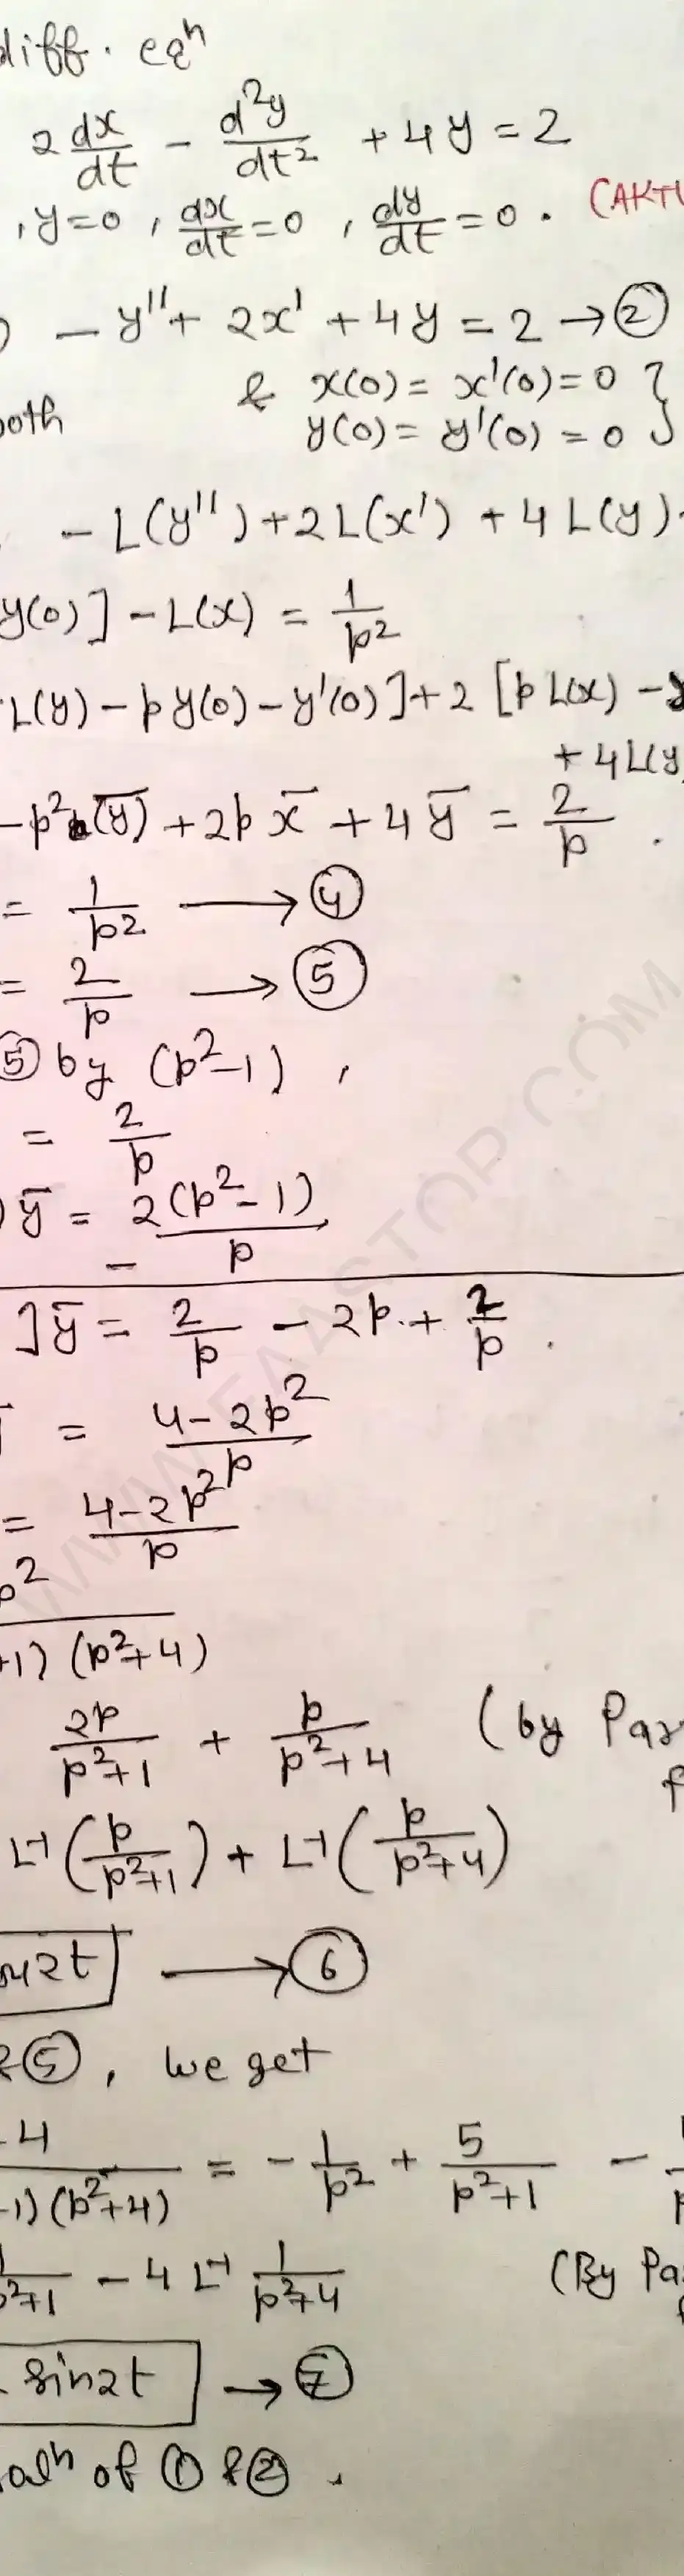 diff. eqⁿ
2 dx/dt - d²y/dt² + 4y = 2
, y=0, dx/dt=0, dy/dt=0. (AKTU
- y" + 2x' + 4y = 2 → ②
& x(0) = x'(0) = 0 }
both
y(0) = y'(0) = 0
- L(y") + 2L(x') + 4 L(y)
y(0)] - L(x) = 1/p²
L(y) - py(0) - y'(0)] + 2 [p L(x) -
+ 4L(y
-p²(ȳ) + 2p x̄ + 4ȳ = 2/p .
= 1/p² → ④
= 2/p → ⑤
⑤ by (p²-1),
= 2/p
)ȳ = 2(p²-1)/p
-
]ȳ = 2/p - 2p + 2/p .
= 4-2p²/p
= 4-2p²/p
p²
+1) (p²+4)
2p/p²+1 + p/p²+4 (by Par
L⁻¹(p/p²+1) + L⁻¹(p/p²+4)
2t → ⑥
& ⑤, we get
4/1)(p²+4) = - 1/p² + 5/p²+1 -
p²+1 - 4 L⁻¹ 1/p²+4 (By Pa
sin2t → ⑦
solⁿ of ① & ② .
WWW.FAASTOP.COM